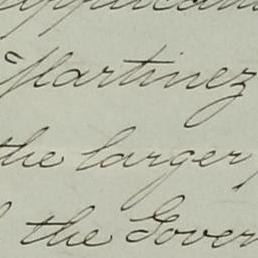 Martinez
the larger
the Gover